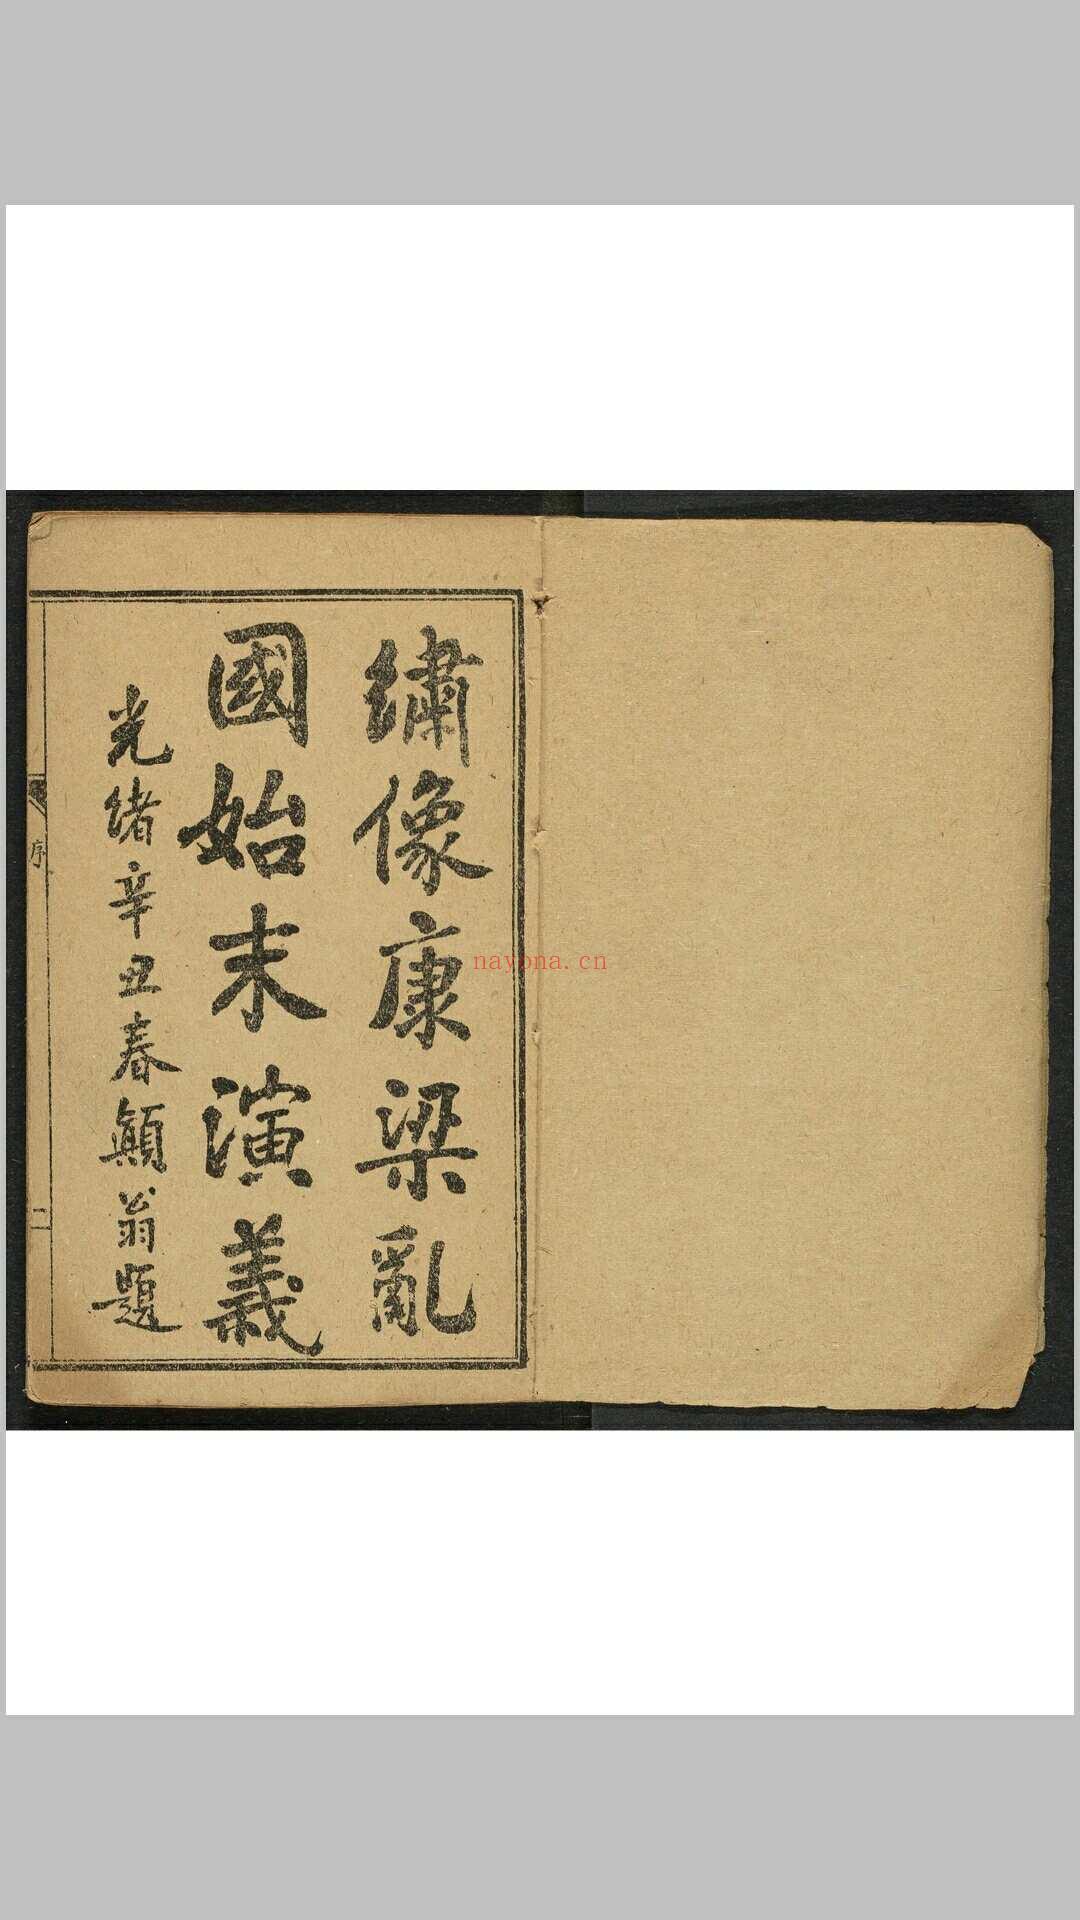 繡像康梁亂
國始末演義
光緒辛丑春顛翁題
序
二
nayona.cn